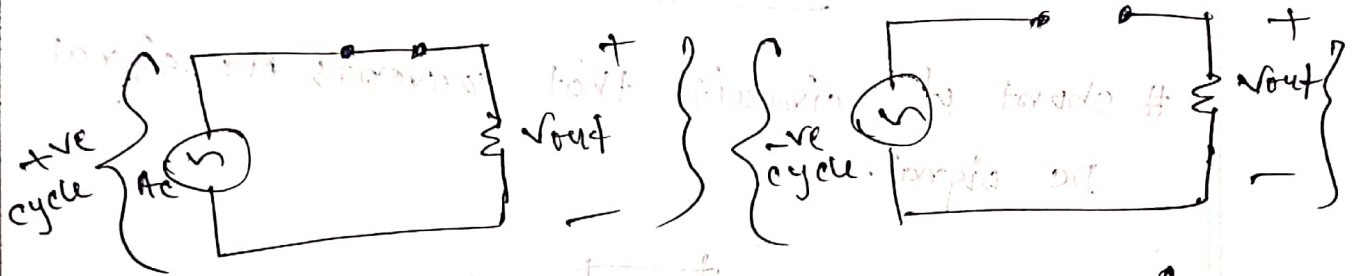 +ve
cycle
AC
+
Vout
-
-ve
cycle.
+
Vout
-